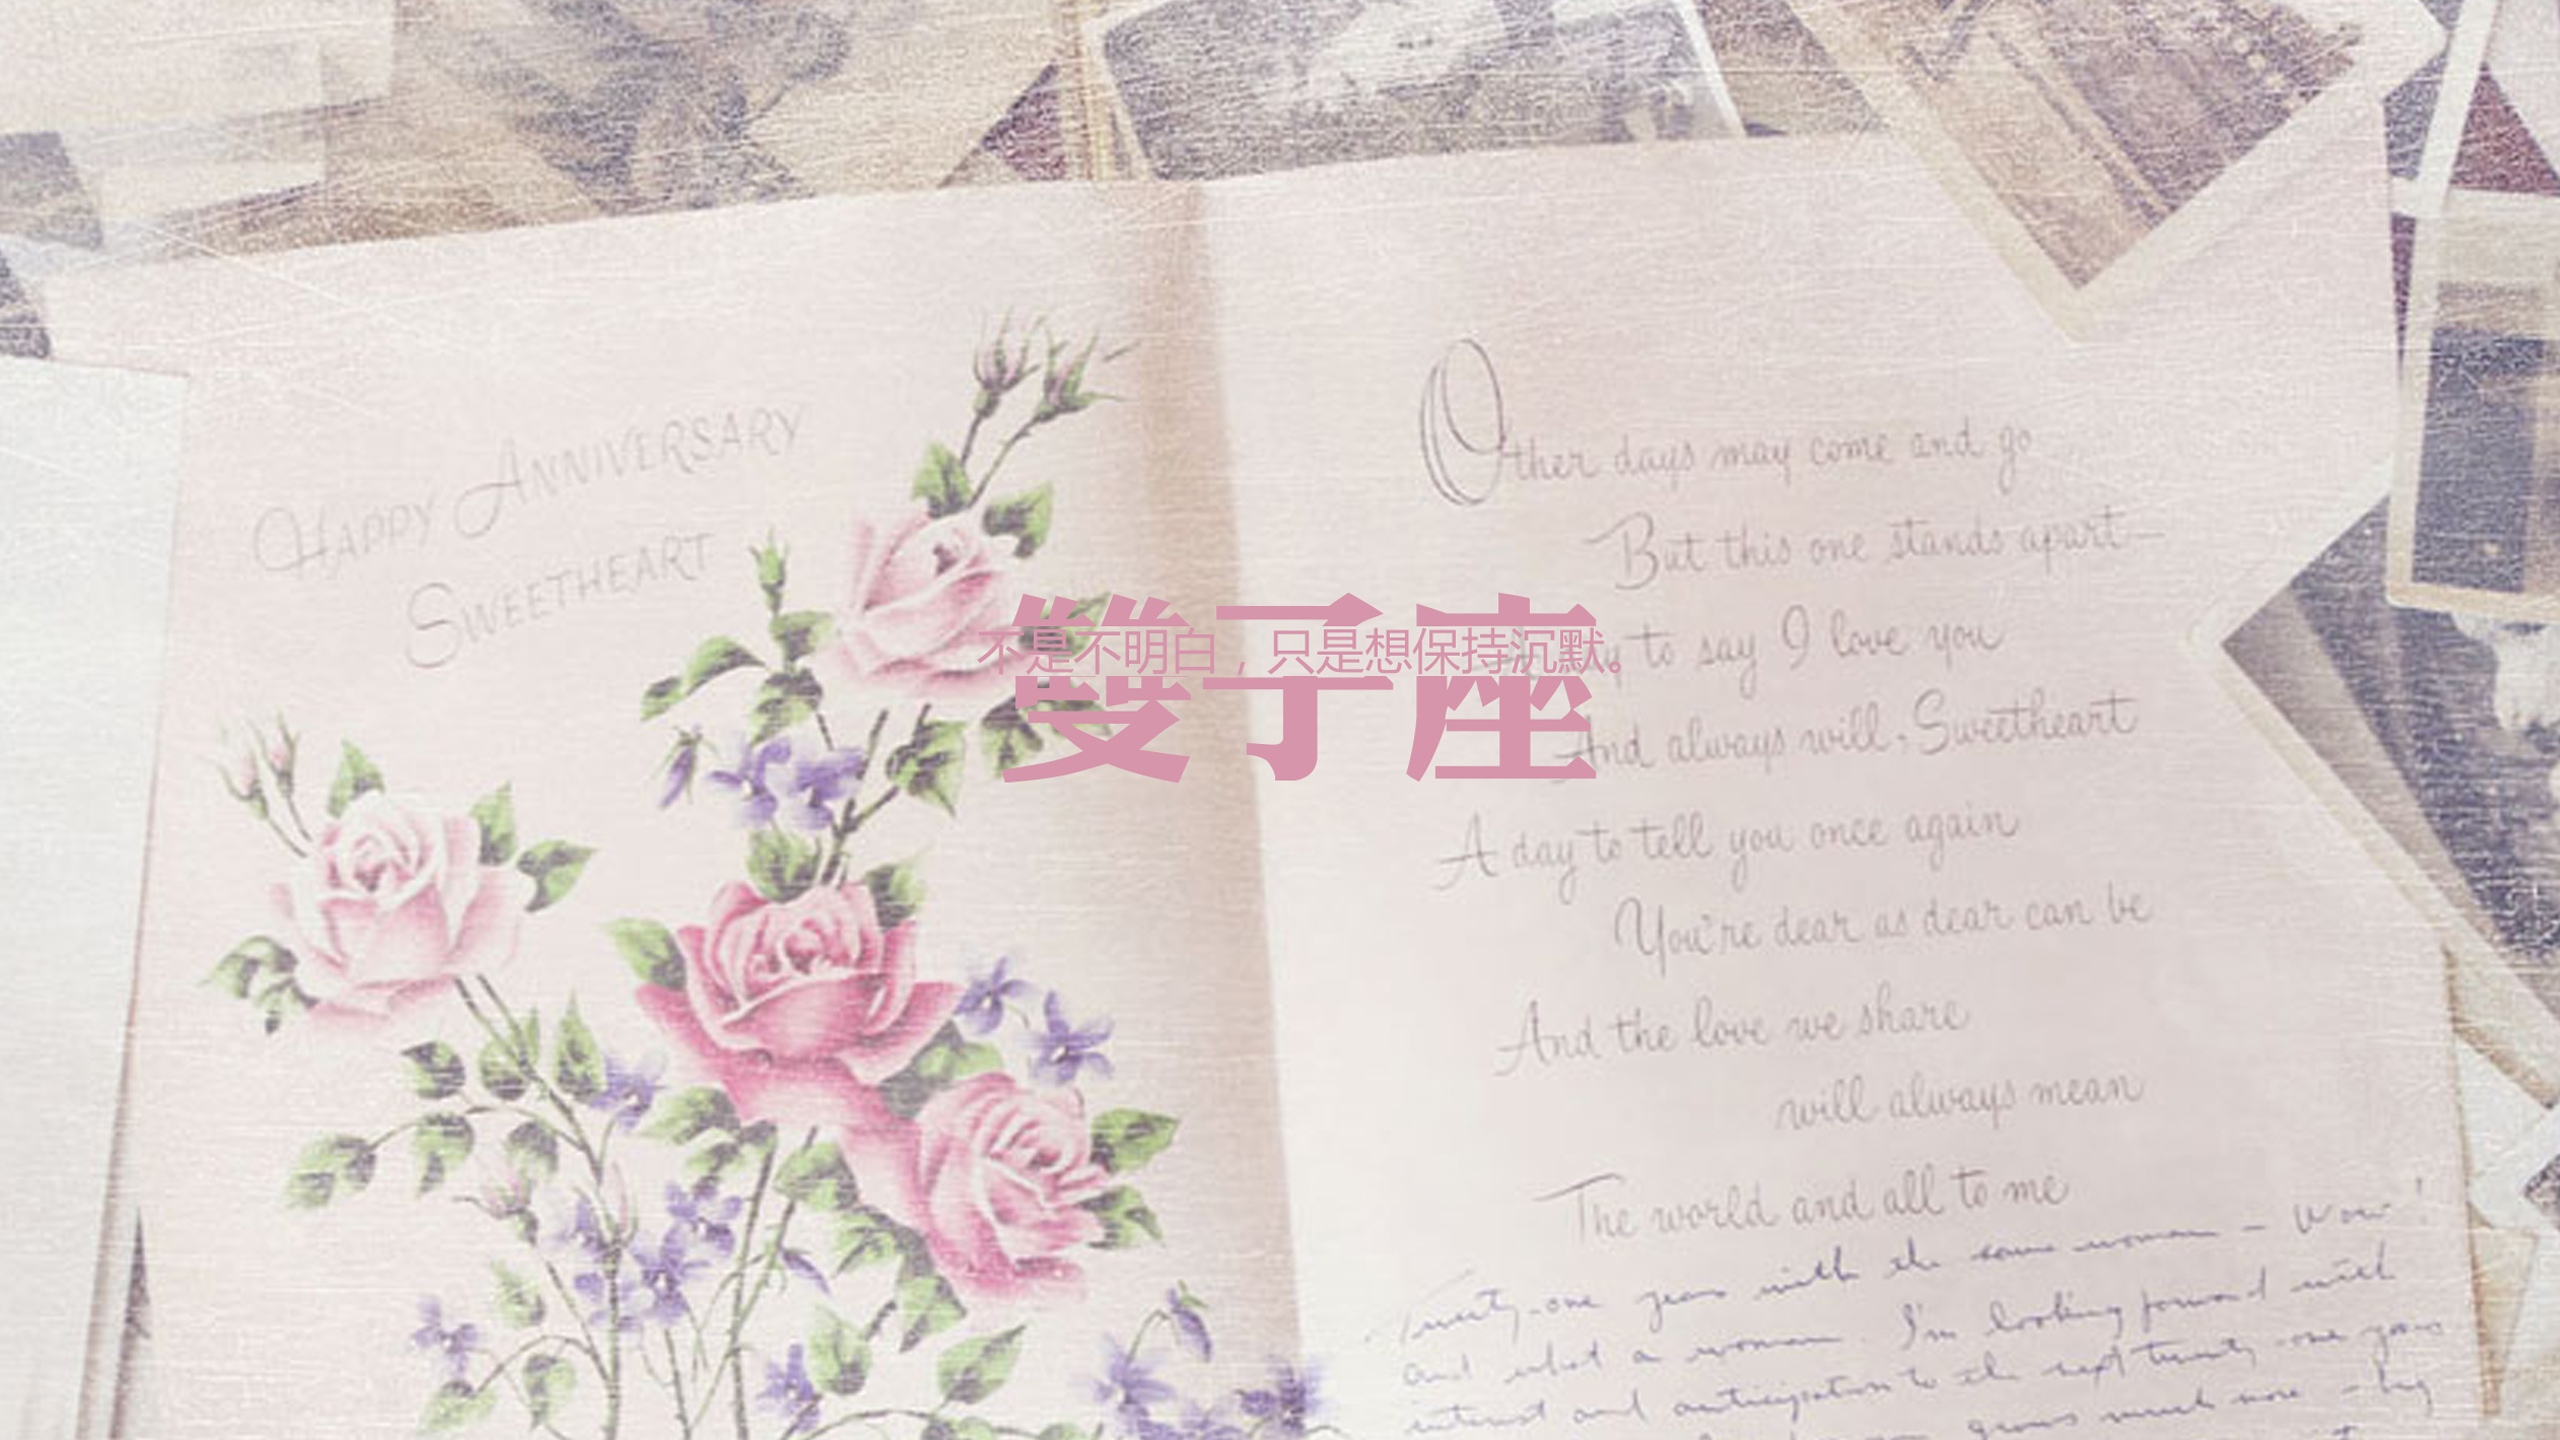 HAPPY ANNIVERSARY
SWEETHEART
Other days may come and go
But this one stands apart—
to say I love you
And always will, Sweetheart
A day to tell you once again
You're dear as dear can be
And the love we share
will always mean
The world and all to me
Twenty-one years with the same woman — Wow!
and what a woman. I'm looking forward with
interest and anticipation to the next twenty-one years
grows much more
雙子座
不是不明白，只是想保持沉默。